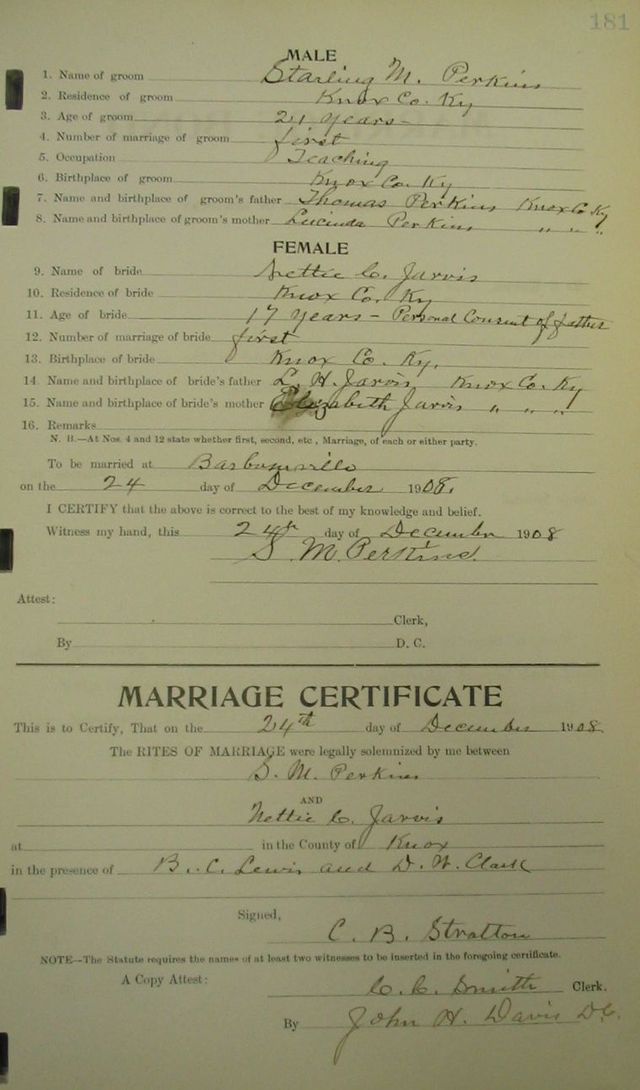 181
MALE
1. Name of groom Starling M. Perkins
2. Residence of groom Knox Co. Ky
3. Age of groom 21 years-
4. Number of marriage of groom first
5. Occupation Teaching
6. Birthplace of groom Knox Co. Ky
7. Name and birthplace of groom's father Thomas Perkins Knox Co Ky
8. Name and birthplace of groom's mother Lucinda Perkins " " "
FEMALE
9. Name of bride Nettie C. Jarvis
10. Residence of bride Knox Co. Ky
11. Age of bride 17 years - Personal Consent of father
12. Number of marriage of bride first
13. Birthplace of bride Knox Co. Ky.
14 Name and birthplace of bride's father L. H. Jarvis, Knox Co. Ky
15. Name and birthplace of bride's mother Elizabeth Jarvis " " "
16. Remarks
N. B.—At Nos. 4 and 12 state whether first, second, etc, Marriage, of each or either party.
To be married at Barbourville
on the 24 day of December 1908.
I CERTIFY that the above is correct to the best of my knowledge and belief.
Witness my hand, this 24th day of December 1908
S. M. Perkins.
Attest:
Clerk,
By D. C.
MARRIAGE CERTIFICATE
This is to Certify, That on the 24th day of December 1908.
The RITES OF MARRIAGE were legally solemnized by me between
S. M. Perkins
AND
Nettie C. Jarvis
at in the County of Knox
in the presence of B. C. Lewis and D. W. Clark
Signed,
C. B. Stratton
NOTE—The Statute requires the names of at least two witnesses to be inserted in the foregoing certificate.
A Copy Attest: C. C. Smith Clerk.
By John H. Davis D.C.